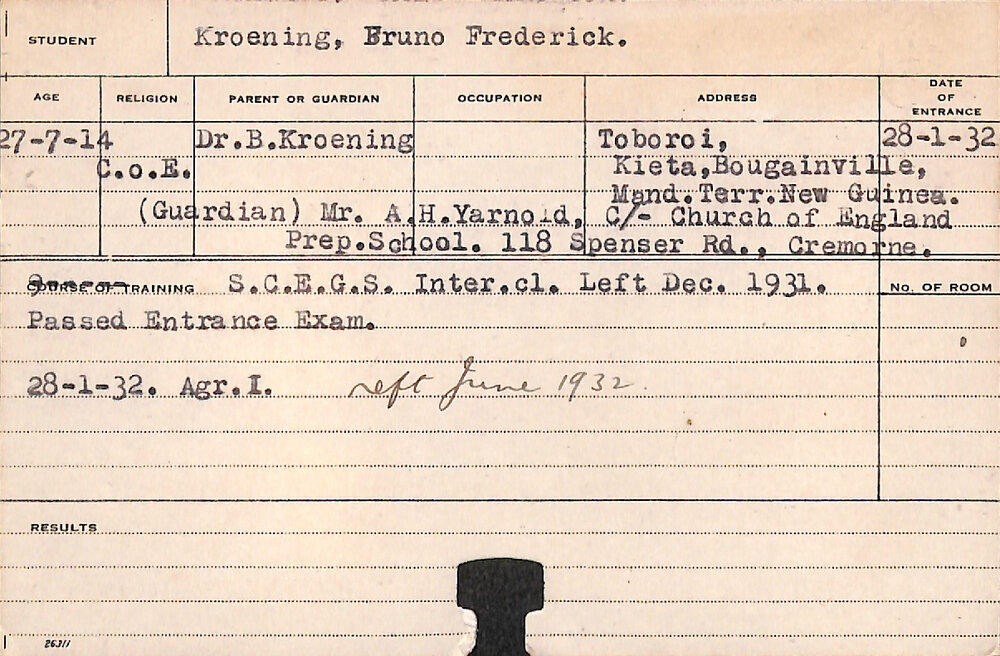 STUDENT Kroening, Bruno Frederick.
AGE RELIGION PARENT OR GUARDIAN OCCUPATION ADDRESS DATE OF ENTRANCE
27-7-14 Dr.B.Kroening Toboroi, 28-1-32
C.o.E. Kieta,Bougainville,
Mand.Terr.New Guinea.
(Guardian) Mr. A.H.Yarnold, C/- Church of England
Prep.School. 118 Spenser Rd., Cremorne.
COURSE OF TRAINING S.C.E.G.S. Inter.cl. Left Dec. 1931. No. OF ROOM
Passed Entrance Exam.
28-1-32. Agr.I. Left June 1932.
RESULTS
26311